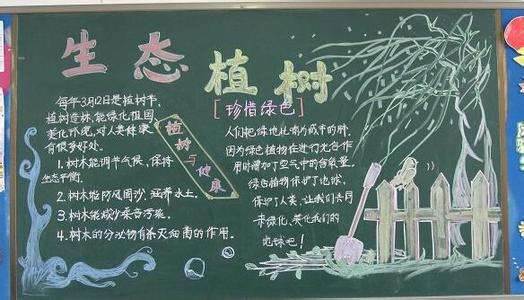 生态植树
每年3月12日是植树节,
植树造林,能绿化祖国
美化环境,对人类健康
有很多好处。
1.树木能调节气候,保持
生态平衡.
2.树木能防风固沙,涵养水土.
3.树木能减少噪音污染.
4.树木的分泌物有杀灭细菌的作用.
植树与健康
[珍惜绿色]
人们把绿地比喻为城市的肺,
因为绿色植物在进行光合作
用时增加了空气中的含氧量.
绿色植物保护了地球,
保护了人类.让我们共同
来绿化、美化我们的
地球吧!